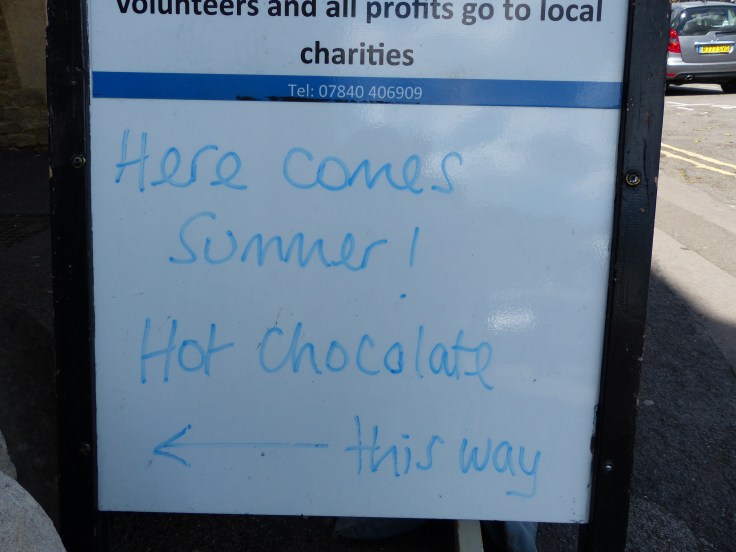 volunteers and all profits go to local
charities
Tel: 07840 406909
Here comes
Summer!
Hot Chocolate
← this way